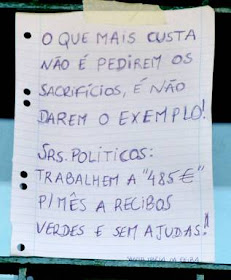 O QUE MAIS CUSTA
NÃO É PEDIREM OS
SACRIFÍCIOS, É NÃO
DAREM O EXEMPLO!
SRS. POLÍTICOS:
TRABALHEM A "485€"
P/MÊS A RECIBOS
VERDES E SEM AJUDAS!